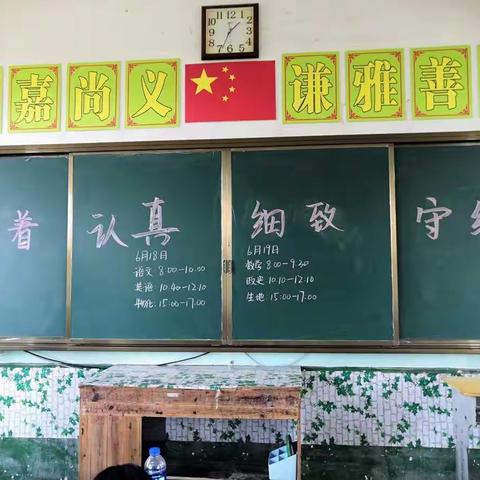 嘉尚义 谦雅善
着 认真 细致 守纪
6月18日
语文 8:00—10:00
英语: 10:40—12:10
物化: 15:00—17:00
6月19日
数学 8:00—9:30
政史 10:10—12:10
生地 15:00—17:00